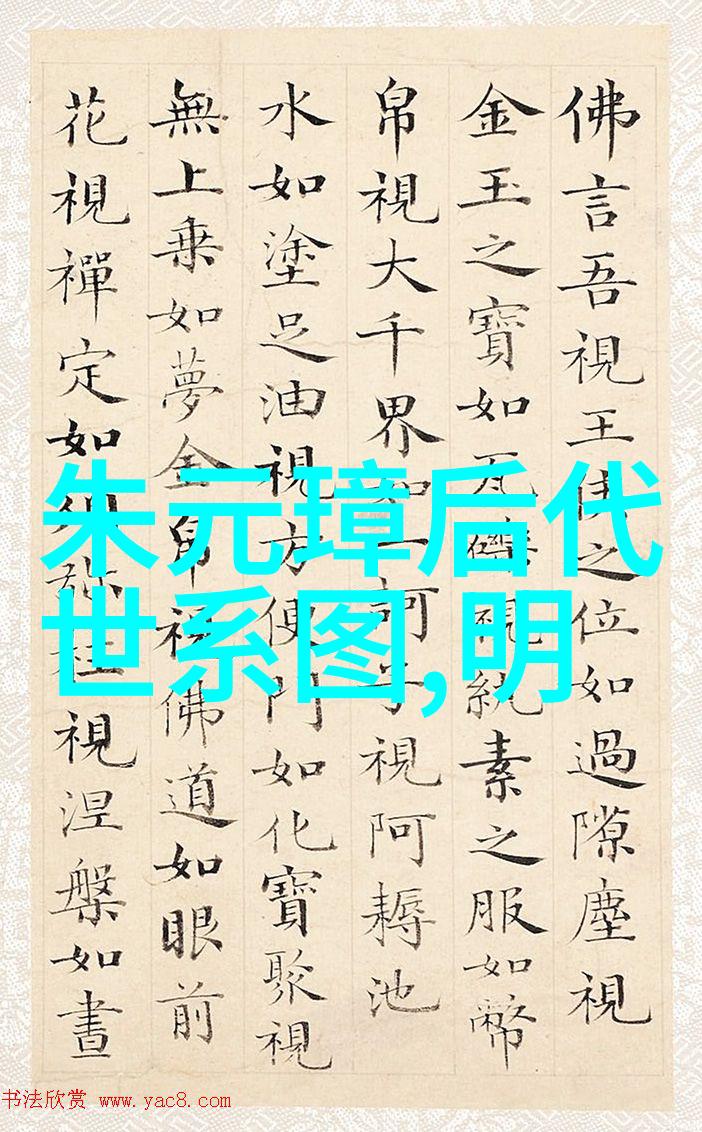 佛言吾視王侯之位如過隙塵視
金玉之寶如瓦礫視紈素之服如幣
帛視大千界如一訶子視阿耨池
水如塗足油視方便門如化寶聚視
無上乗如夢金帛視佛道如眼前
花視禪定如須彌柱視涅槃如晝
朱元璋后代
世系图,明
书法欣赏 www.yac8.com